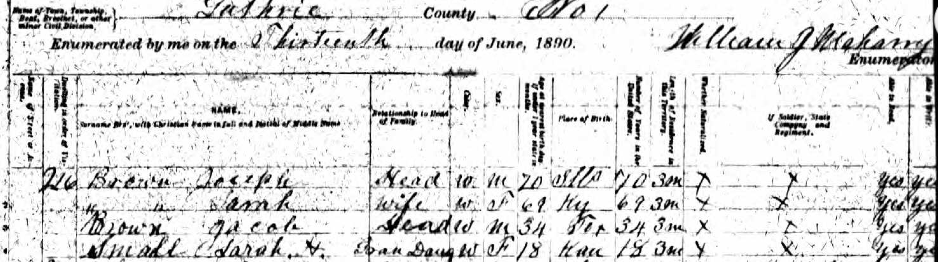 Name of Town, Township, Beat, Precinct, or other minor Civil Division. Guthrie County No 1
Enumerated by me on the Thirteenth day of June, 1890. William J Enumerator
NAME.
Surname first, with Christian Name in full and Initial of Middle Name
Relationship to Head of Family.
Color.
Sex.
Place of Birth.
Number of Years in the United States.
Length of Residence in this Territory.
Whether Naturalized.
If Soldier, State Company and Regiment.
Able to Read.
216 Brown Joseph Head W. M 70 Ills 70 3m X X yes yes
" " Sarah Wife W. F 69 Ky 69 3m X X yes yes
Brown Jacob Head W M 34 34 3m X X yes ye
Small Sarah Gran Daug W F 18 Kan 18 3m X X yes ye